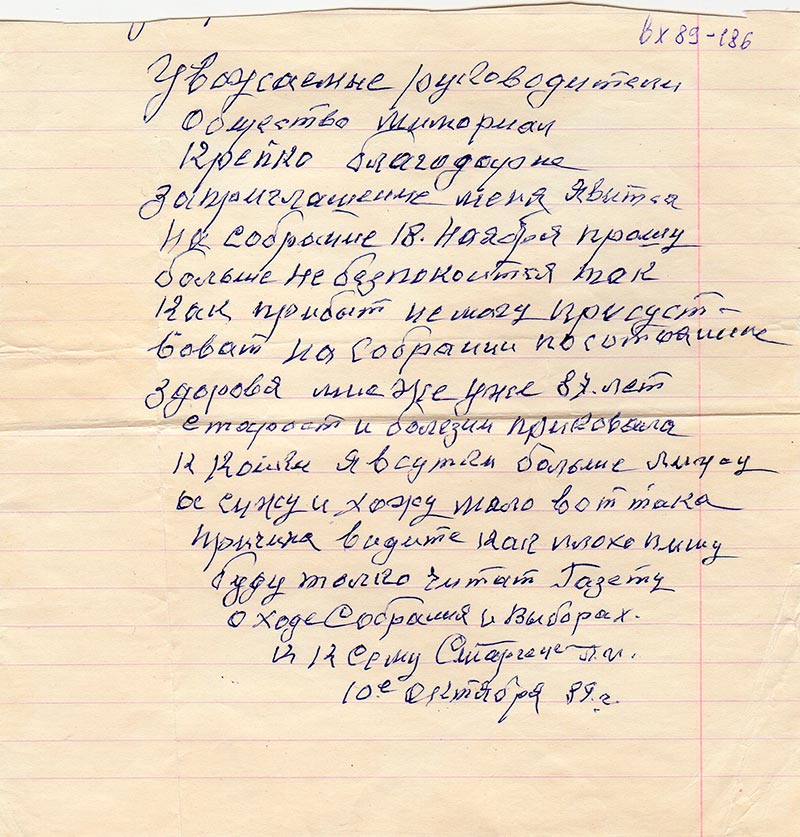 вх 89-186
Уважаемые руководители
Общество мимориал
Крепко благодарне
за приглашение меня явитья
На собрание 18. Наября прошу
больше не безпокоится так
как прибыт не могу присуст-
воват на собрании по состоянние
здоровя мне же уже 87. лет
старост и болезни приковала
к койки я в сутки больше лижу
сижу и хожу мало вот така
причина видите как плохо пишу
буду толко читат Газету
О ходе Собрания и Выборах.
к Сему
10е октября 89 г.